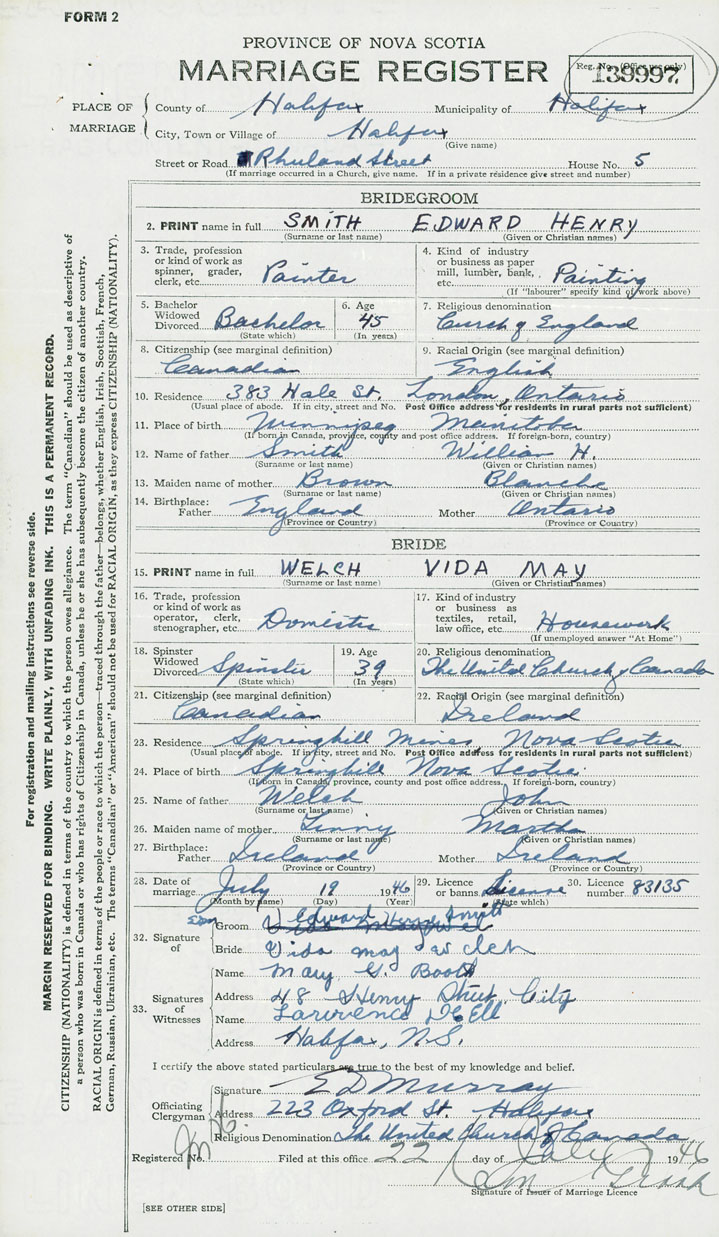 FORM 2
PROVINCE OF NOVA SCOTIA
MARRIAGE REGISTER
Reg. No. (Office use only)
139997
PLACE OF MARRIAGE
County of Halifax Municipality of Halifax
City, Town or Village of Halifax
(Give name)
Street or Road Rhuland Street House No. 5
(If marriage occurred in a Church, give name. If in a private residence give street and number)
BRIDEGROOM
2. PRINT name in full SMITH EDWARD HENRY
(Surname or last name) (Given or Christian names)
3. Trade, profession or kind of work as spinner, grader, clerk, etc. Painter
4. Kind of industry or business as paper mill, lumber, bank, etc. Painting
(If "labourer" specify kind of work above)
5. Bachelor Widowed Divorced Bachelor
(State which)
6. Age 45
(In years)
7. Religious denomination
Curch of England
8. Citizenship (see marginal definition)
Canadian
9. Racial Origin (see marginal definition)
English
10. Residence 383 Hale St. London, Ontario
(Usual place of abode. If in city, street and No. Post Office address for residents in rural parts not sufficient)
11. Place of birth Winnipeg Manitoba
(If born in Canada, province, county and post office address. If foreign-born, country)
12. Name of father Smith William H.
(Surname or last name) (Given or Christian names)
13. Maiden name of mother Brown Blanche
(Surname or last name) (Given or Christian names)
14. Birthplace: Father England Mother Ontario
(Province or Country) (Province or Country)
BRIDE
15. PRINT name in full WELCH VIDA MAY
(Surname or last name) (Given or Christian names)
16. Trade, profession or kind of work as operator, clerk, stenographer, etc. Domestic
17. Kind of industry or business as textiles, retail, law office, etc. Housework
(If unemployed answer "At Home")
18. Spinster Widowed Divorced Spinster
(State which)
19. Age 39
(In years)
20. Religious denomination
The United Church of Canada
21. Citizenship (see marginal definition)
Canadian
22. Racial Origin (see marginal definition)
Ireland
23. Residence Springhill Mines Nova Scotia
(Usual place of abode. If in city, street and No. Post Office address for residents in rural parts not sufficient)
24. Place of birth Springhill Nova Scotia
(If born in Canada, province, county and post office address. If foreign-born, country)
25. Name of father Welch John
(Surname or last name) (Given or Christian names)
26. Maiden name of mother Martha
(Surname or last name) (Given or Christian names)
27. Birthplace: Father Ireland Mother Ireland
(Province or Country) (Province or Country)
28. Date of marriage July 19 1946
(Month by name) (Day) (Year)
29. Licence or banns
(State which)
30. Licence number 83135
32. Signature of
Groom Edward Smith
Bride Vida may welch
33. Signatures of Witnesses
Name Mary G. Booth
Address 48 Henry Street, City
Name Lawrence
Address Halifax, N.S.
I certify the above stated particulars are true to the best of my knowledge and belief.
Officiating Clergyman
Signature E D Murray
Address 223 Oxford St. Halifax
Religious Denomination The United Church of Canada
Registered No. Filed at this office 22 day of July 1946
Signature of Issuer of Marriage Licence
[SEE OTHER SIDE]
For registration and mailing instructions see reverse side.
MARGIN RESERVED FOR BINDING. WRITE PLAINLY, WITH UNFADING INK. THIS IS A PERMANENT RECORD.
CITIZENSHIP (NATIONALITY) is defined in terms of the country to which the person owes allegiance. The term "Canadian" should be used as descriptive of
a person who was born in Canada or who has rights of Citizenship in Canada, unless he or she has subsequently become the citizen of another country.
RACIAL ORIGIN is defined in terms of the people or race to which the person—traced through the father—belongs, whether English, Irish, Scottish, French,
German, Russian, Ukrainian, etc. The terms "Canadian" or "American" should not be used for RACIAL ORIGIN, as they express CITIZENSHIP (NATIONALITY).